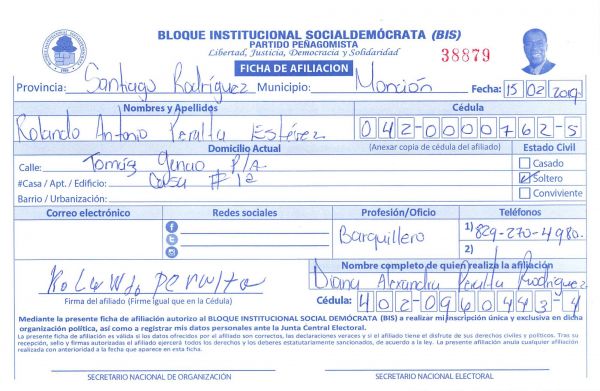 BLOQUE INSTITUCIONAL SOCIALDEMÓCRATA (BIS)
PARTIDO PEÑAGOMISTA
Libertad, Justicia, Democracia y Solidaridad
38879
FICHA DE AFILIACION
Provincia: Santiago Rodríguez Municipio: Monción Fecha: 15 02 2019
Nombres y Apellidos Cédula
Rolando Antonio Peralta Estévez 042-0000762-5
Domicilio Actual (Anexar copia de cédula del afiliado) Estado Civil
Calle: Tomás Genao P/A. Casado
#Casa / Apt. / Edificio: Casa # 12 Soltero
Barrio / Urbanización: Conviviente
Correo electrónico Redes sociales Profesión/Oficio Teléfonos
Barquillero 1) 829-270-4980.
2)
Nombre completo de quien realiza la afiliación
Rolando Peralta Diana Alexandra Peralta Rodríguez
Firma del afiliado (Firme igual que en la Cédula) Cédula: 402-0960443-4
Mediante la presente ficha de afiliación autorizo al BLOQUE INSTITUCIONAL SOCIAL DEMÓCRATA (BIS) a realizar mi inscripción única y exclusiva en dicha
organización política, así como a registrar mis datos personales ante la Junta Central Electoral.
La presente ficha de afiliación es válida si los datos ofrecidos por el afiliado son correctos, las declaraciones veraces y si el afiliado tiene el disfrute de sus derechos civiles y políticos. Tras su
recepción, sello y firmas autorizadas el afiliado ejercerá todos los derechos y los deberes estatutariamente sancionados, de acuerdo a la ley. La presente afiliación anula cualquier afiliación
realizada con anterioridad a la fecha que aparece en esta ficha.
SECRETARIO NACIONAL DE ORGANIZACIÓN SECRETARIO NACIONAL ELECTORAL